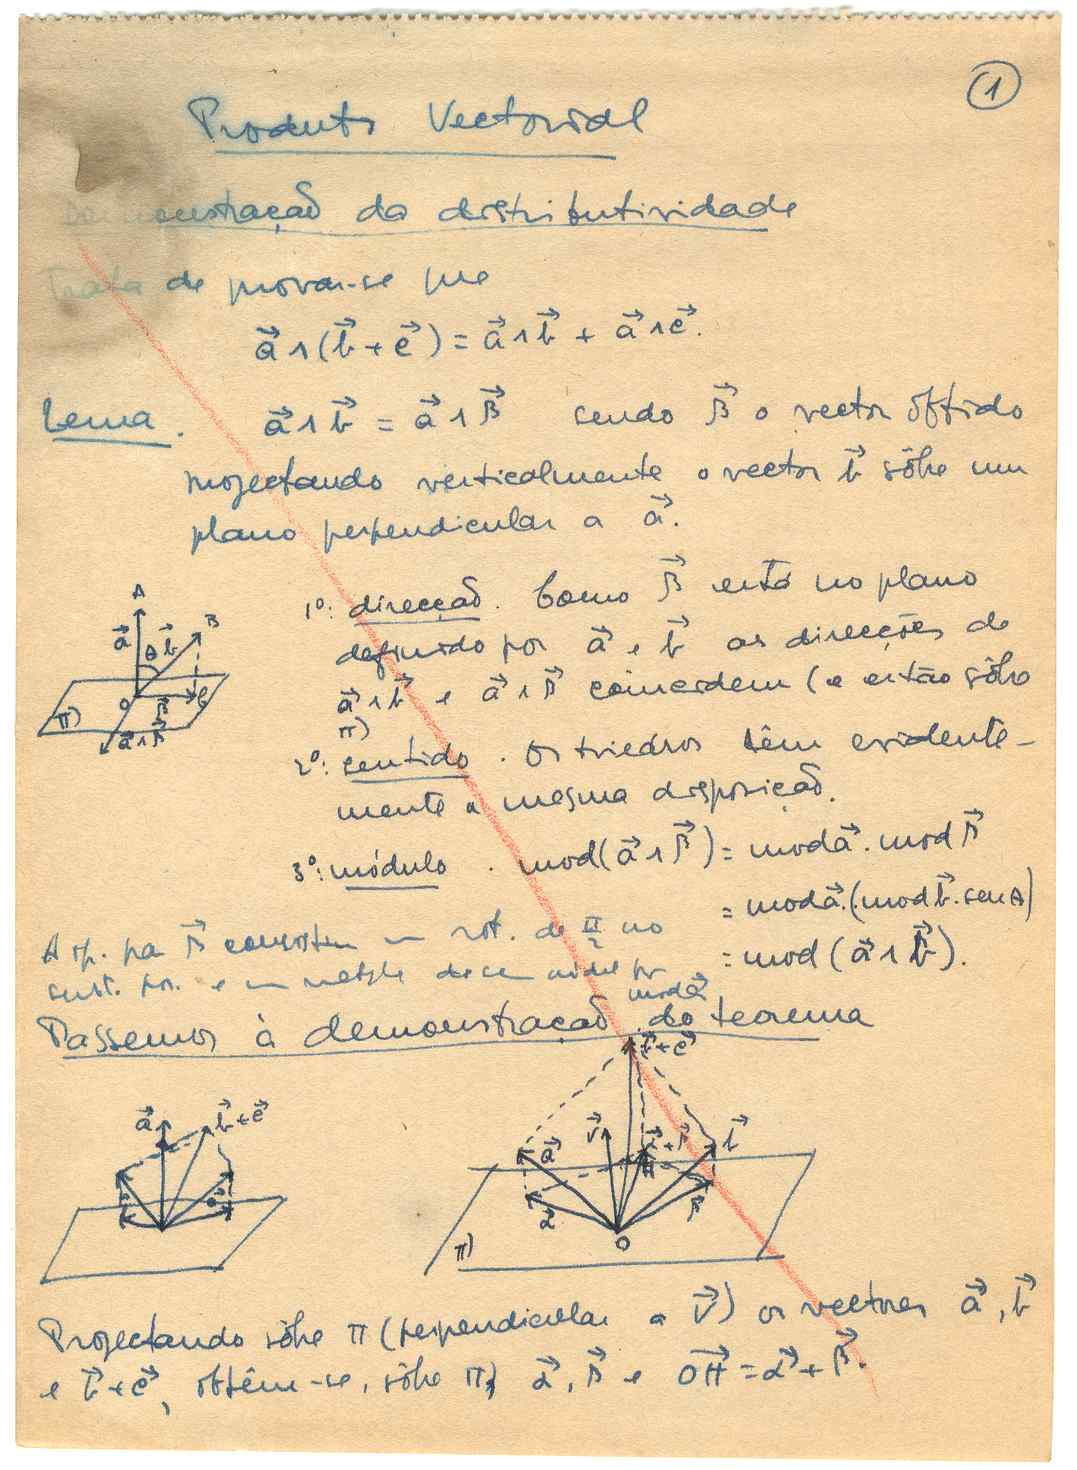 1
Produto Vectorial
Demonstração da distributividade
Trata de provar-se que
a⃗ ∧ (b⃗ + c⃗) = a⃗ ∧ b⃗ + a⃗ ∧ c⃗.
Lema. a⃗ ∧ b⃗ = a⃗ ∧ β⃗ sendo β⃗ o vector obtido
projectando verticalmente o vector b⃗ sôbre um
plano perpendicular a a⃗.
A
a⃗ θ b⃗ B
O β⃗ C
π)
a⃗ ∧ β⃗
1º: direcção. Como β⃗ está no plano
definido por a⃗ e b⃗ as direcções de
a⃗ ∧ b⃗ e a⃗ ∧ β⃗ coincidem (e estão sôbre
π)
2º: sentido. Os triedros têm evidente-
mente a mesma disposição.
3º: módulo. mod(a⃗ ∧ β⃗) = mod a⃗ . mod β⃗
= mod a⃗.(mod b⃗. sen θ)
= mod (a⃗ ∧ b⃗).
A op. pa β⃗ consiste em rot. de π/2 no
sent. pos. e por
mod a⃗
Passemos à demonstração do teorema
a⃗ b⃗ + c⃗
b⃗ + c⃗
a⃗ v⃗ b⃗
H
α⃗ β⃗
O
π)
Projectando sôbre π (perpendicular a v⃗) os vectores a⃗, b⃗
e b⃗ + c⃗, obtêm-se, sôbre π, α⃗, β⃗ e OH⃗ = α⃗ + β⃗.